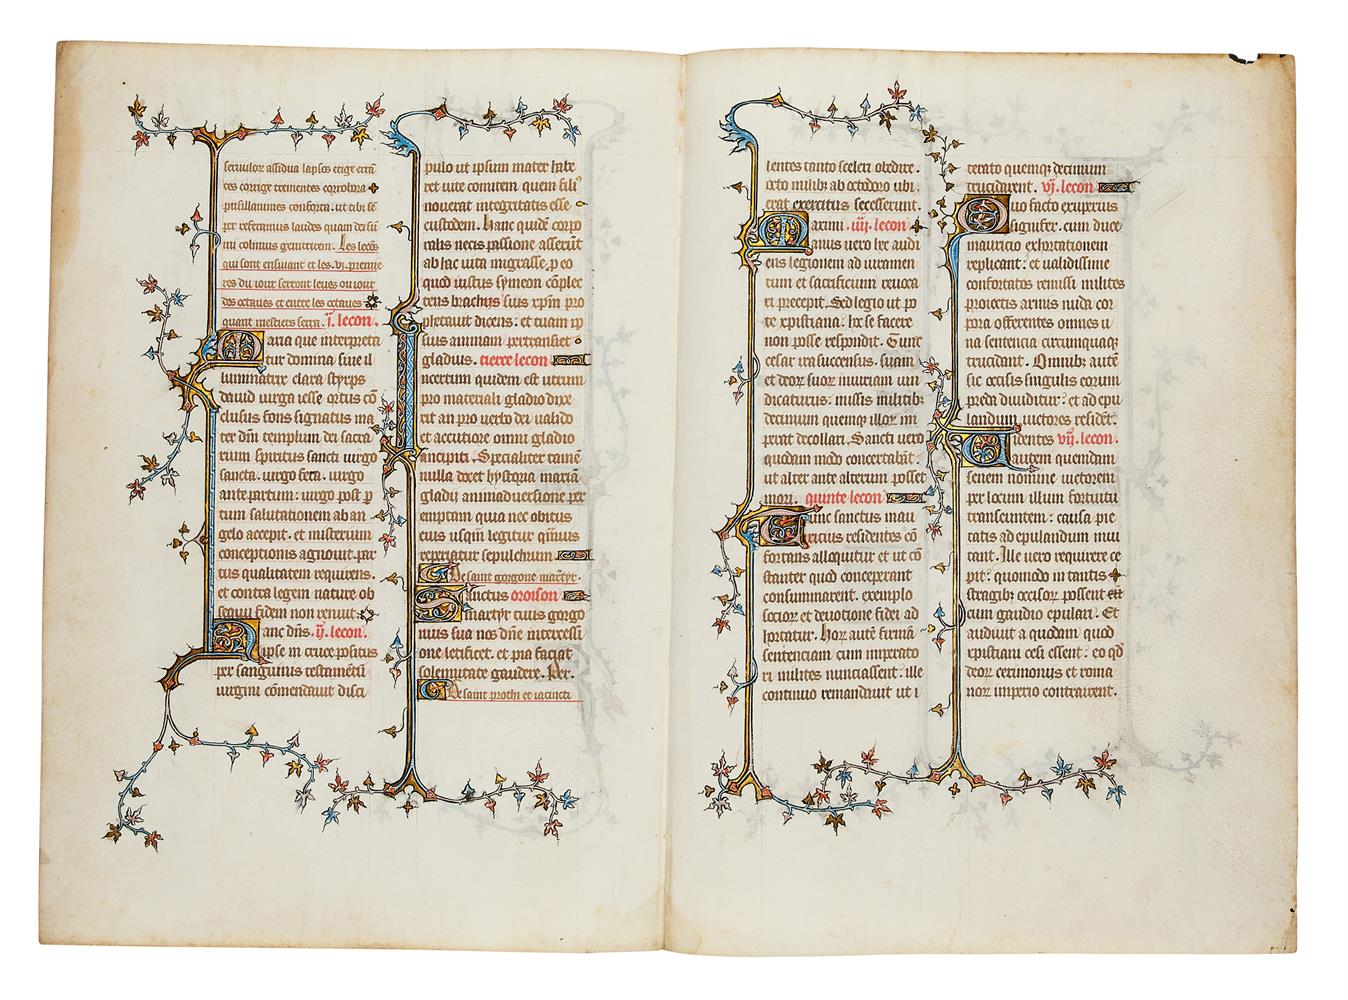 seruulor assidua lapsos erige errā
tes corrige trementes corrobora
pusillanimes conforta. ut tibi sē
per referamus laudes quam dei fi
lii colimus genitricem. Les lecōs
qui sont ensiuant et les .vi. premie
res du iour seront leues ou iour
des octaues et entre les octaues
quant mestiers sera. .i. lecon.
Maria que interpreta
tur domina siue il
luminatrix clara styrps
dauid uirga iesse ortus cō
clusus fons signatus ma
ter dn̄i templum dei sacra
rium spiritus sancti uirgo
sancta. uirgo feta. uirgo
ante partum: uirgo post p
tum salutationem ab an
gelo accepit. et misterium
conceptionis agnouit. par
tus qualitatem requirens.
et contra legem nature ob
sequii fidem non renuit
Hanc dn̄s. .ij. lecon.
ipse in cruce positus
per sanguinis testamētū
uirgini cōmendauit disci
pulo ut ipsum mater habe
ret uite comitem quem filiꝰ
nouerat integritatis esse
custodem. Hanc quidē corpo
ralis necis passione asserūt
ab hac uita migrasse. p eo
quod iustus symeon cōplec
tens brachijs suis xp̄m pro
phetauit dicens. et tuam ip
sius animam pertransiet
gladius. tierce lecon
Incertum quidem est utrum
pro materiali gladio dixe
rit an pro uerbo dei ualido
et accutiore omni gladio
ancipiti. Specialiter tamē
nulla docet hystoria mariā
gladij animaduersione per
emptam quia nec obitus
eius usq̄m legitur q̄nuis
reperiatur sepulchrum
De saint gorgone martyr.
Sanctus oroison
martyr tuus gorgo
nius sua nos dn̄e intercessi
one letificet. et pia faciat
solennitate gaudere. Per.
De saint prothi et iacincti
lentes tanto sceleri obedire.
octo milibꝫ ab octodoro ubi
erat exercitus secesserunt.
Maximi .iiij. lecon
anus uero hec audi
ens legionem ad iuramen
tum et sacrificium reuoca
ri precepit. Sed legio ut po
te xpistiana: hec se facere
non posse respondit. Tunc
cesar ira succensus. suam
et deoꝝ suoꝝ iniuriam uin
dicaturus: missis militibꝫ
decimum quemqꝫ illoꝝ im
perat decollari. Sancti uero
quodam modo concertabāt.
ut alter ante alterum posset
mori. quinte lecon
Tunc sanctus mau
ricius residentes cō
fortans alloquitur et ut cō
stanter quod conceperant
consummarent. exemplo
socioꝝ et deuotione fidei ad
hortatur. Hoꝝ autē firmā
sentenciam cum imperato
ri milites nunciassent: ille
continuo remandauit ut i
terato quemqꝫ decimum
trucidarent. .vj. lecon
Quo facto exuperius
signifer. cum duce
mauricio exhortationem
replicant: et ualidissime
confortatos remissi milites
proiectis armis nuda cor
pora offerentes omnes u
na sentencia circumquaqꝫ
trucidant. Omnibꝫ autē
sic occisis singulis eorum
preda diuiditur: et ad epu
landum uictores resident.
Sidentes .vij. lecon.
autem quendam
senem nomine uictorem
per locum illum fortuitu
transeuntem: causa pie
tatis ad epulandum inui
tant. Ille uero requirere ce
pit: quomodo in tantis
stragibꝫ occisoꝝ possent
cum gaudio epulari. Et
audiuit a quodam quod
xpistiani cesi essent: eo qd
deoꝝ cerimonijs et roma
noꝝ imperio contrairent.